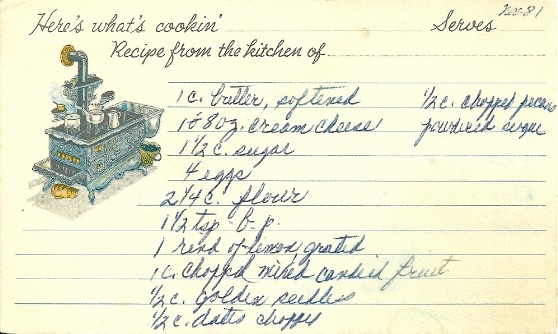 Nov-81
Here's what's cookin' Serves
Recipe from the kitchen of
1 c. butter, softened
1 8 oz. cream cheese
1 1/2 c. sugar
4 eggs
2 1/4 c. flour
1 1/2 tsp b.p.
1 rend of lemon grated
1 c. chopped mixed candied fruit
1/2 c. golden seedless
1/2 c. dates chopped
1/2 c. chopped pecans
powdered sugar